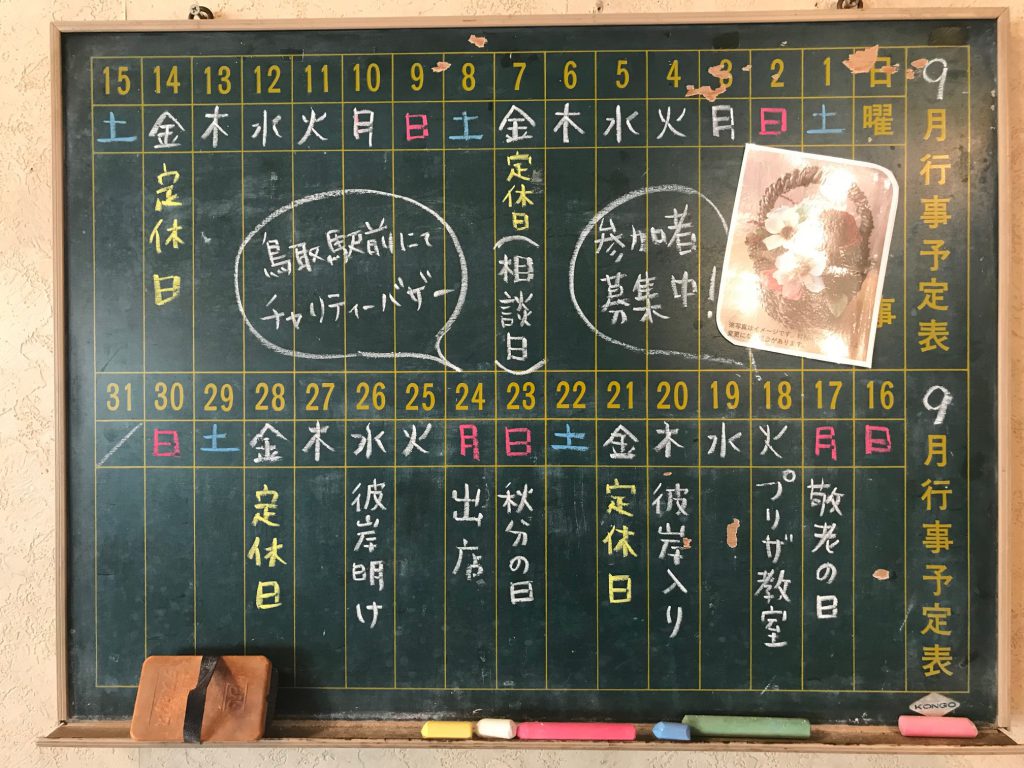 9月行事予定表
日曜 事
1 土
2 日
3 月
4 火
5 水
6 木
7 金 定休日(相談日)
8 土
9 日
10 月
11 火
12 水
13 木
14 金 定休日
15 土
参加者
募集中!
※写真はイメージです。
変更になる があります
鳥取駅前にて
チャリティーバザー
9月行事予定表
16 日
17 月 敬老の日
18 火 プリザ教室
19 水
20 木 彼岸入り
21 金 定休日
22 土
23 日 秋分の日
24 月 出店
25 火
26 水 彼岸明け
27 木
28 金 定休日
29 土
30 日
31 /
KONGO